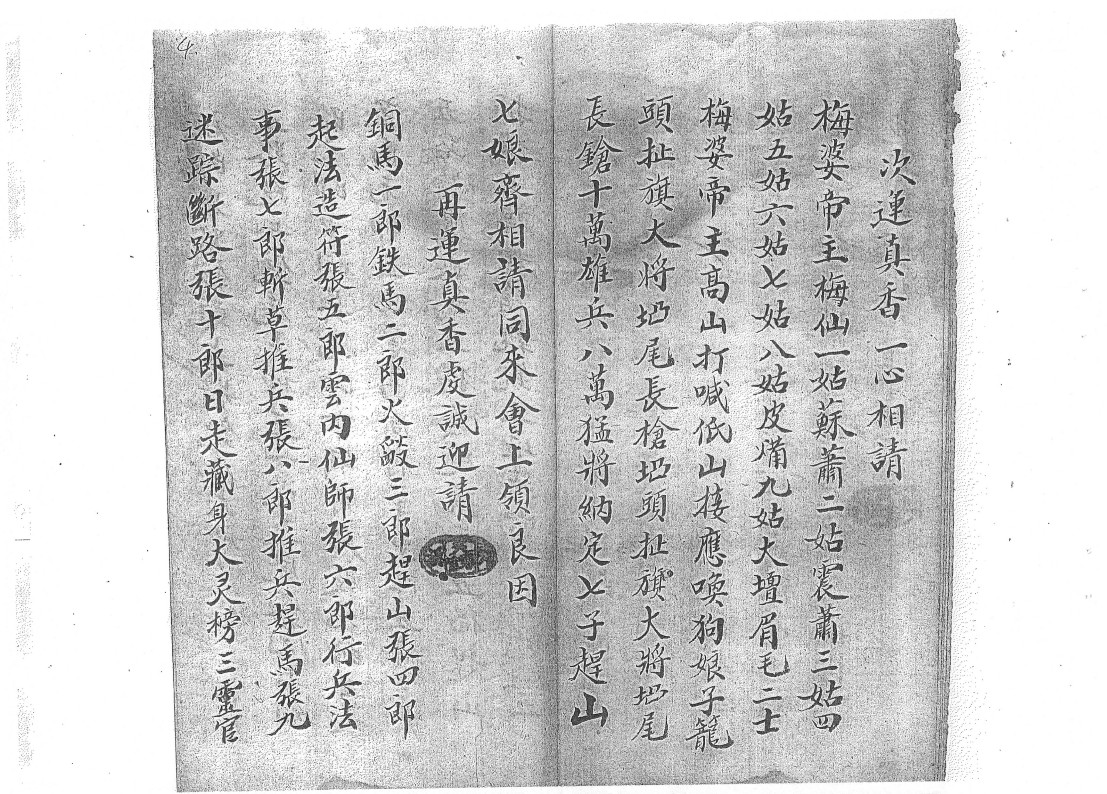 次運真香一心相請
梅婆帝主梅仙一姑蘇蕭二姑震蕭三姑四
姑五姑六姑七姑八姑皮𤒹九姑大壇眉毛二士
梅婆帝主高山打喊低山接應喚狗娘子籠
頭扯旗大將㘭尾長槍㘭頭扯旗大將㘭尾
長鎗十萬雄兵八萬猛將納定七子趕山
七娘齊相請同來會上領良因
再運真香虔誠迎請
銅馬一郎鉄馬二郎火燄三郎趕山張四郎
起法造符張五郎雲内仙師張六郎行兵法
事張七郎斬草推兵張八郎推兵趕馬張九
迷踪斷路張十郎日走藏身大灵榜三靈官
4